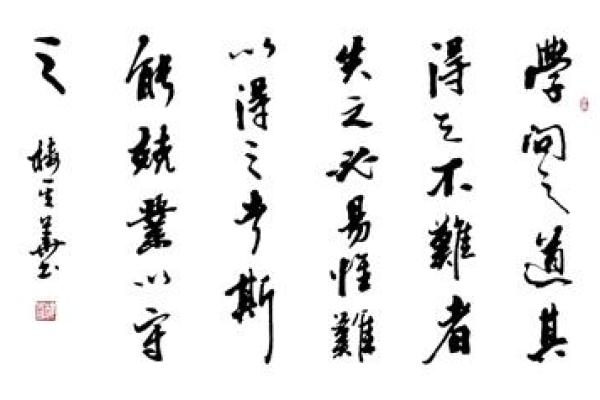 學問之道其
得之不難者
失之必易惟難
以得之者斯
能兢業以守
之
梅 華書